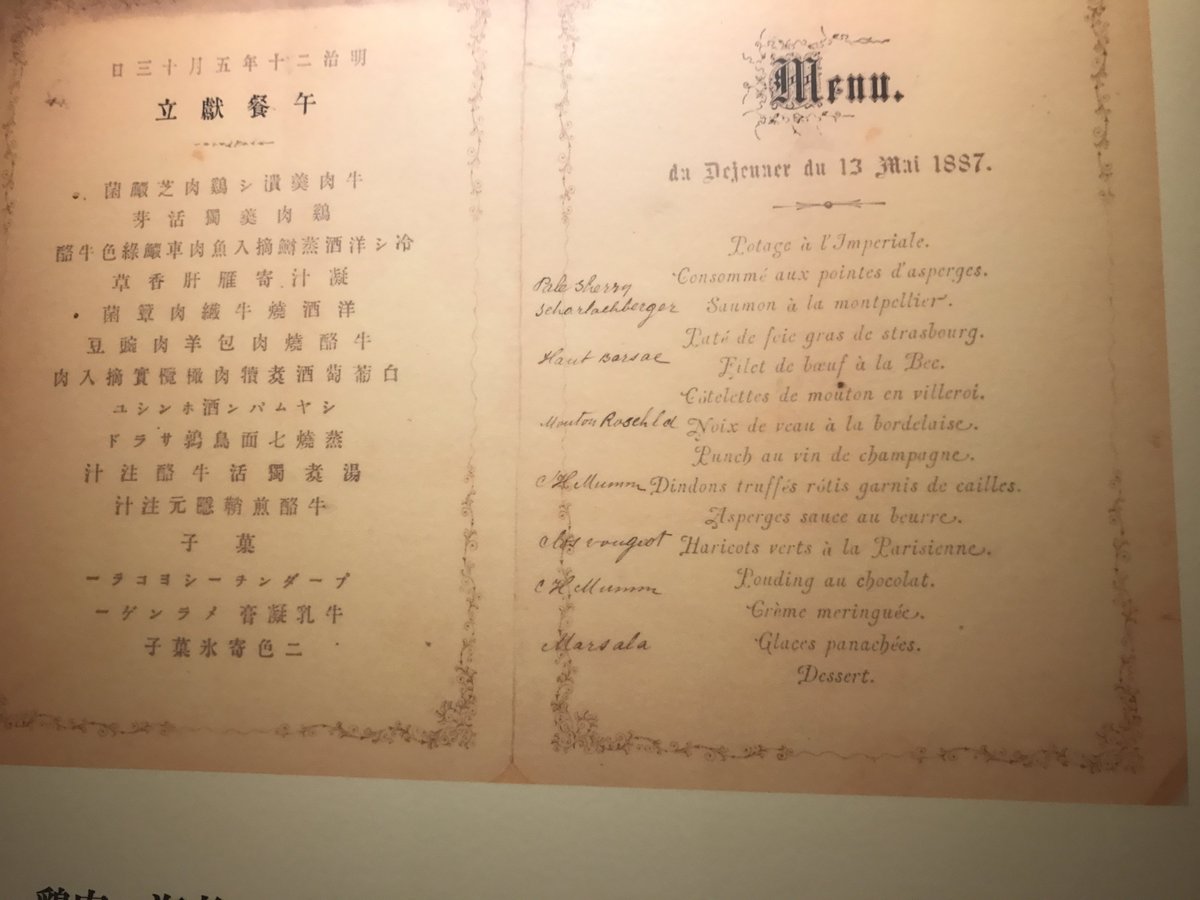 明治二十年五月十三日
午餐獻立
牛肉羹潰シ鷄肉芝菌
鷄肉羹獨活芽
冷シ洋酒蒸摘入魚肉車綠色牛酪
凝汁寄雁肝香草
洋酒燒牛纎肉蕈菌
牛酪燒肉包羊肉豌豆
白葡萄酒煮犢肉橄欖實摘入肉
シヤムパン酒ホンシユ
蒸燒七面鳥鶉サラド
湯煮獨活牛酪注汁
牛酪煎鞘隱元注汁
菓子
プーダンチーシヨコラー
牛乳凝膏 メランゲー
二色寄氷菓子
Menu.
du Dejeuner du 13 Mai 1887.
Potage à l'Imperiale.
Consommé aux pointes d'asperges.
Pale Sherry
Scharlachberger Saumon à la montpellier.
Paté de foie gras de strasbourg.
Haut Barsac Filet de bœuf à la Bec.
Côtelettes de mouton en villeroi.
Mouton Noix de veau à la bordelaise.
Punch au vin de champagne.
C H Mumm Dindons truffés rôtis garnis de cailles.
Asperges sauce au beurre.
Clos vougeot Haricots verts à la Parisienne.
C H Mumm Pouding au chocolat.
Crème meringuée.
Marsala Glaces panachées.
Dessert.